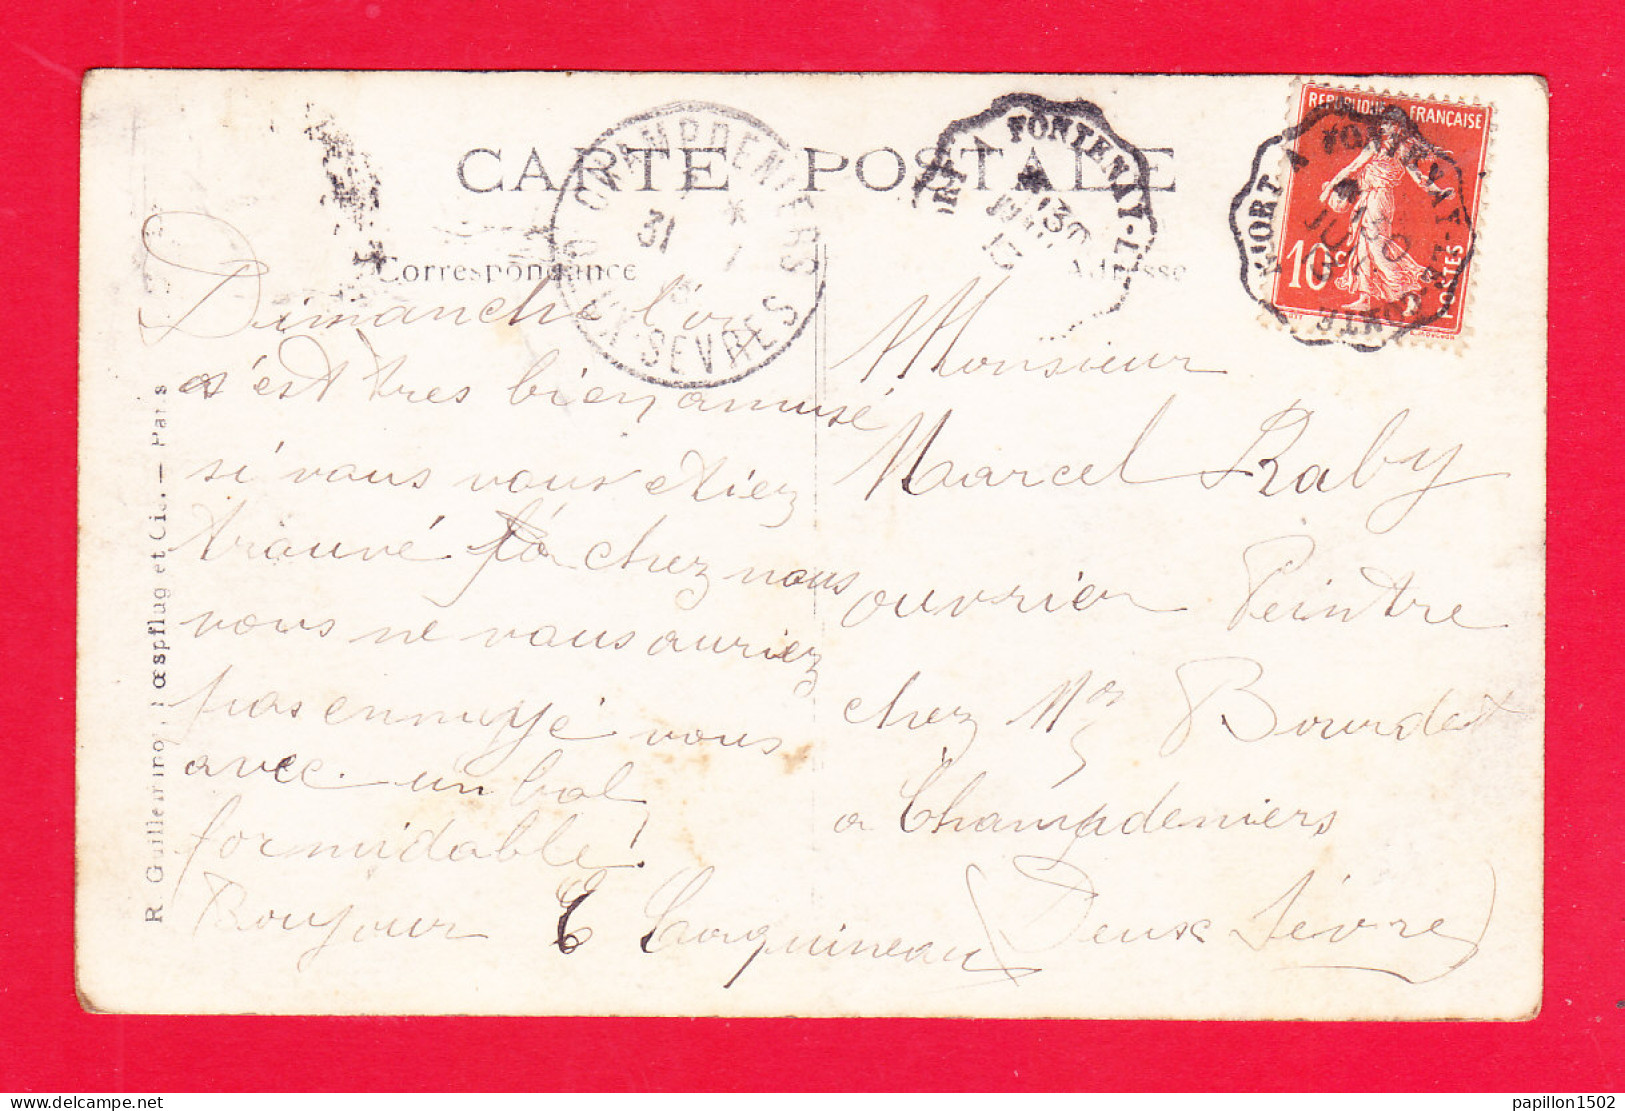 CARTE POSTALE
Correspondance
Adresse
CHAMPDENIERS
31
DEUX-SEVRES
FONTENAY-L
30
REPUBLIQUE FRANÇAISE
10c
POSTES
NIORT A FONTENAY-LE-COMTE
Dimanche l'on
s'est tres bien amusé
si vous vous etiez
trouvé là chez nous
vous ne vous auriez
pas ennuyé vous
avec un bal
formidable!
Bonjour E Coquineau
Monsieur
Marcel Raby
ouvrier Peintre
chez Mr Bourdet
a Champdeniers
(Deux Sèvre)
R. Guilleminot, Bœspflug et Cie. — Paris
papillon1502